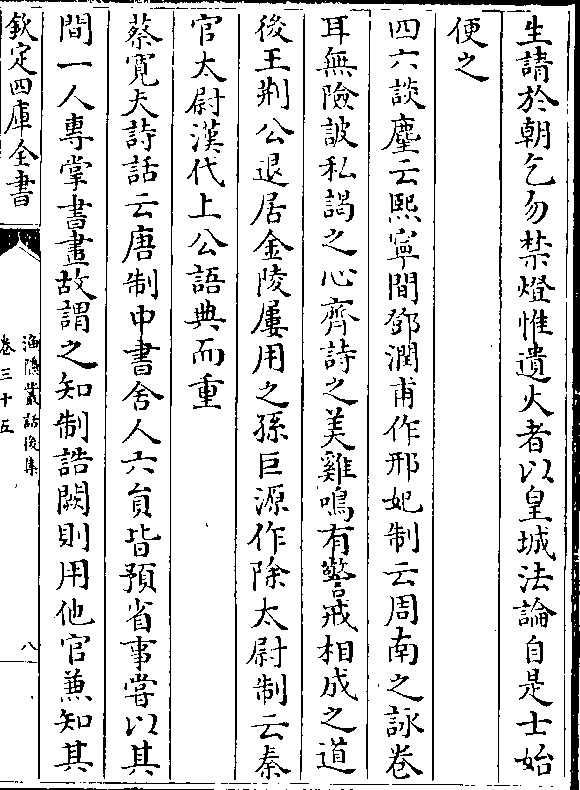 生請於朝乞勿禁燈惟遺火者以皇城法論自是士始
便之
四六談麈云熙寧間鄧潤甫作邢妃制云周南之詠卷
耳無險詖私謁之心齊詩之美雞鳴有警戒相成之道
後王荆公退居金陵屢用之孫巨源作除太尉制云秦
官太尉漢代上公語典而重
蔡寛夫詩話云唐制中書舍人六員皆預省事嘗以其
間一人專掌書畫故謂之知制誥闕則用他官兼知其
欽定四庫全書
漁隱叢話後集
卷三十五
八